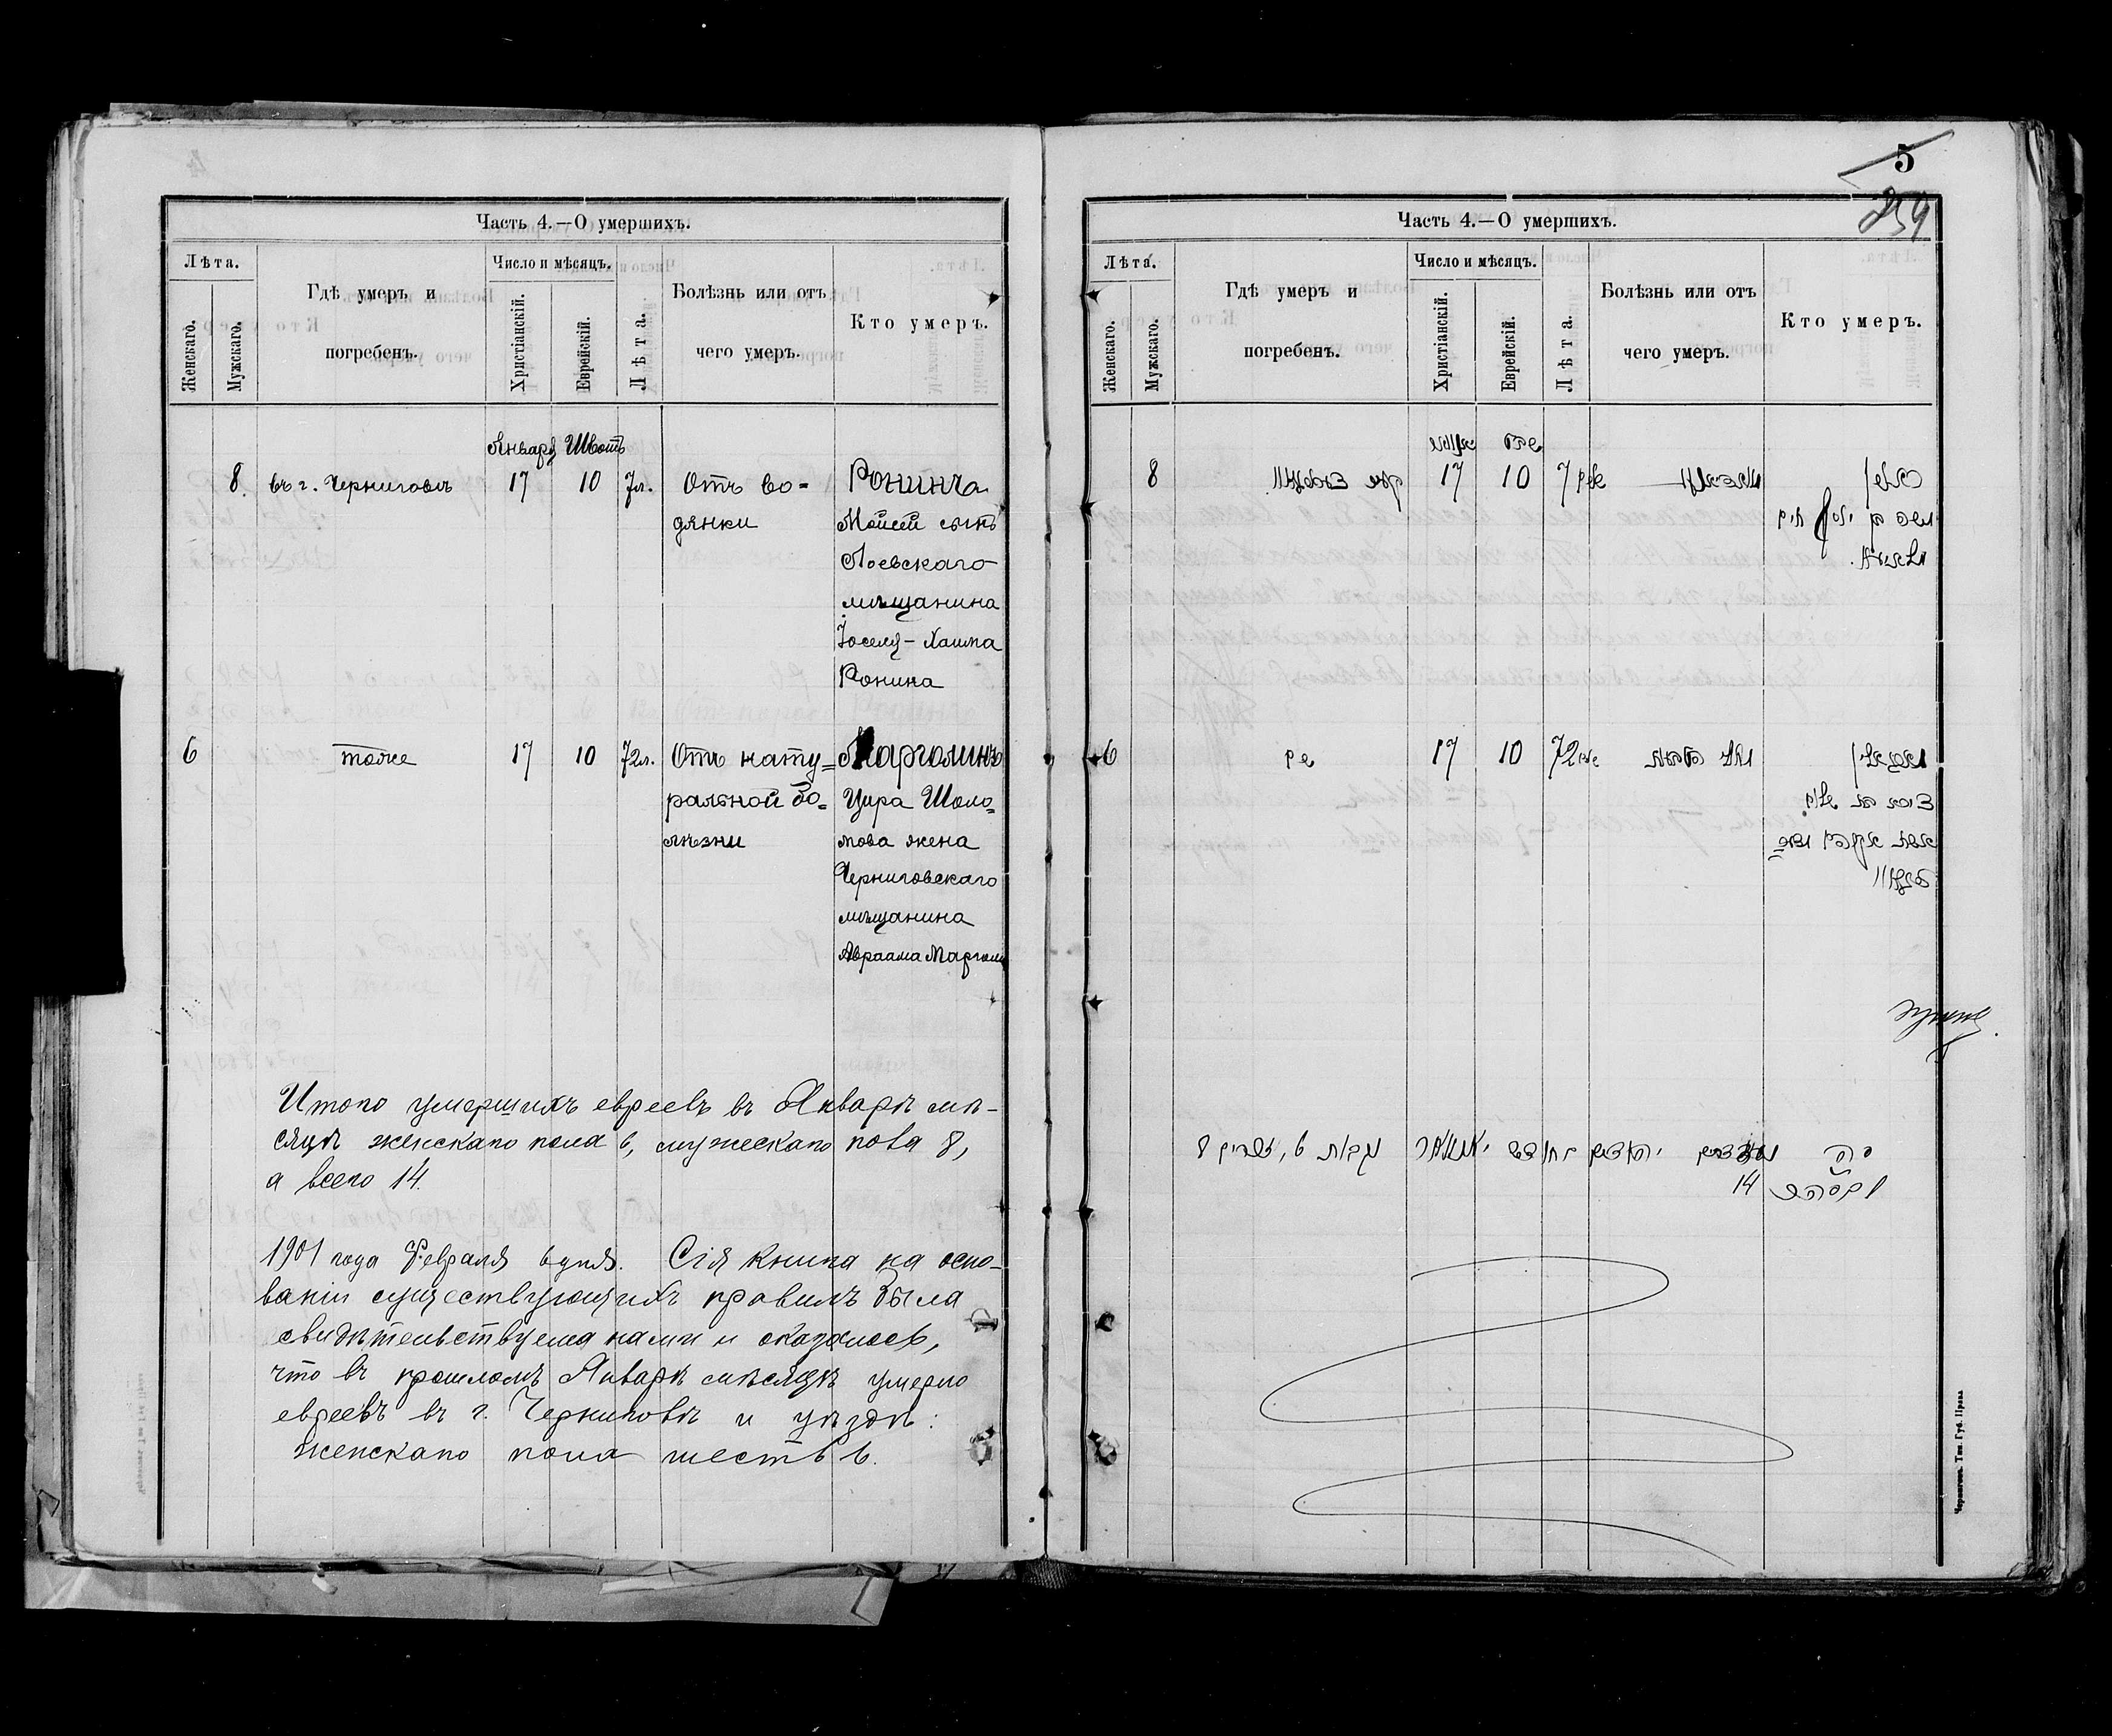 Часть 4.—О умершихъ.
Лѣта.
Женскаго.
Мужскаго.
Гдѣ умеръ и
погребенъ.
Число и мѣсяцъ.
Христіанскій.
Еврейскій.
Лѣта.
Болѣзнь или отъ
чего умеръ.
Кто умеръ.
Январь Шватъ
8. въ г. Черниговѣ 17 10 7л. Отъ во=
дянки
Ронинъ
Мойсей сынъ
Лоевскаго
мѣщанина
Іоселя-Хаима
Ронина
6 тоже 17 10 72л. Отъ нату=
ральной бо=
лѣзни
Марголинъ
Цира Шоло=
мова жена
Черниговскаго
мѣщанина
Авраама Марголи
Итого умершихъ евреевъ въ Январѣ мѣ-
сяцѣ женскаго пола 6, мужескаго пола 8,
а всего 14.
1901 года Февраля 6 дня. Сія книга на осно-
ваніи существующихъ правилъ была
свидѣтельствуема нами и оказалось,
что въ прошломъ Январѣ мѣсяцѣ умерло
евреевъ въ г. Черниговѣ и уѣздѣ:
женскаго пола шесть 6.
5
259
Часть 4.—О умершихъ.
Лѣта.
Женскаго.
Мужскаго.
Гдѣ умеръ и
погребенъ.
Число и мѣсяцъ.
Христіанскій.
Еврейскій.
Лѣта.
Болѣзнь или отъ
чего умеръ.
Кто умеръ.
שבט
8 17 10 7
משה בן יוסף חיים
6 שם 17 10 72
אשת אברהם
בחודש יאנואר נקבות 6, זכרים 8
14
Черниговъ. Тип. Губ. Правл.